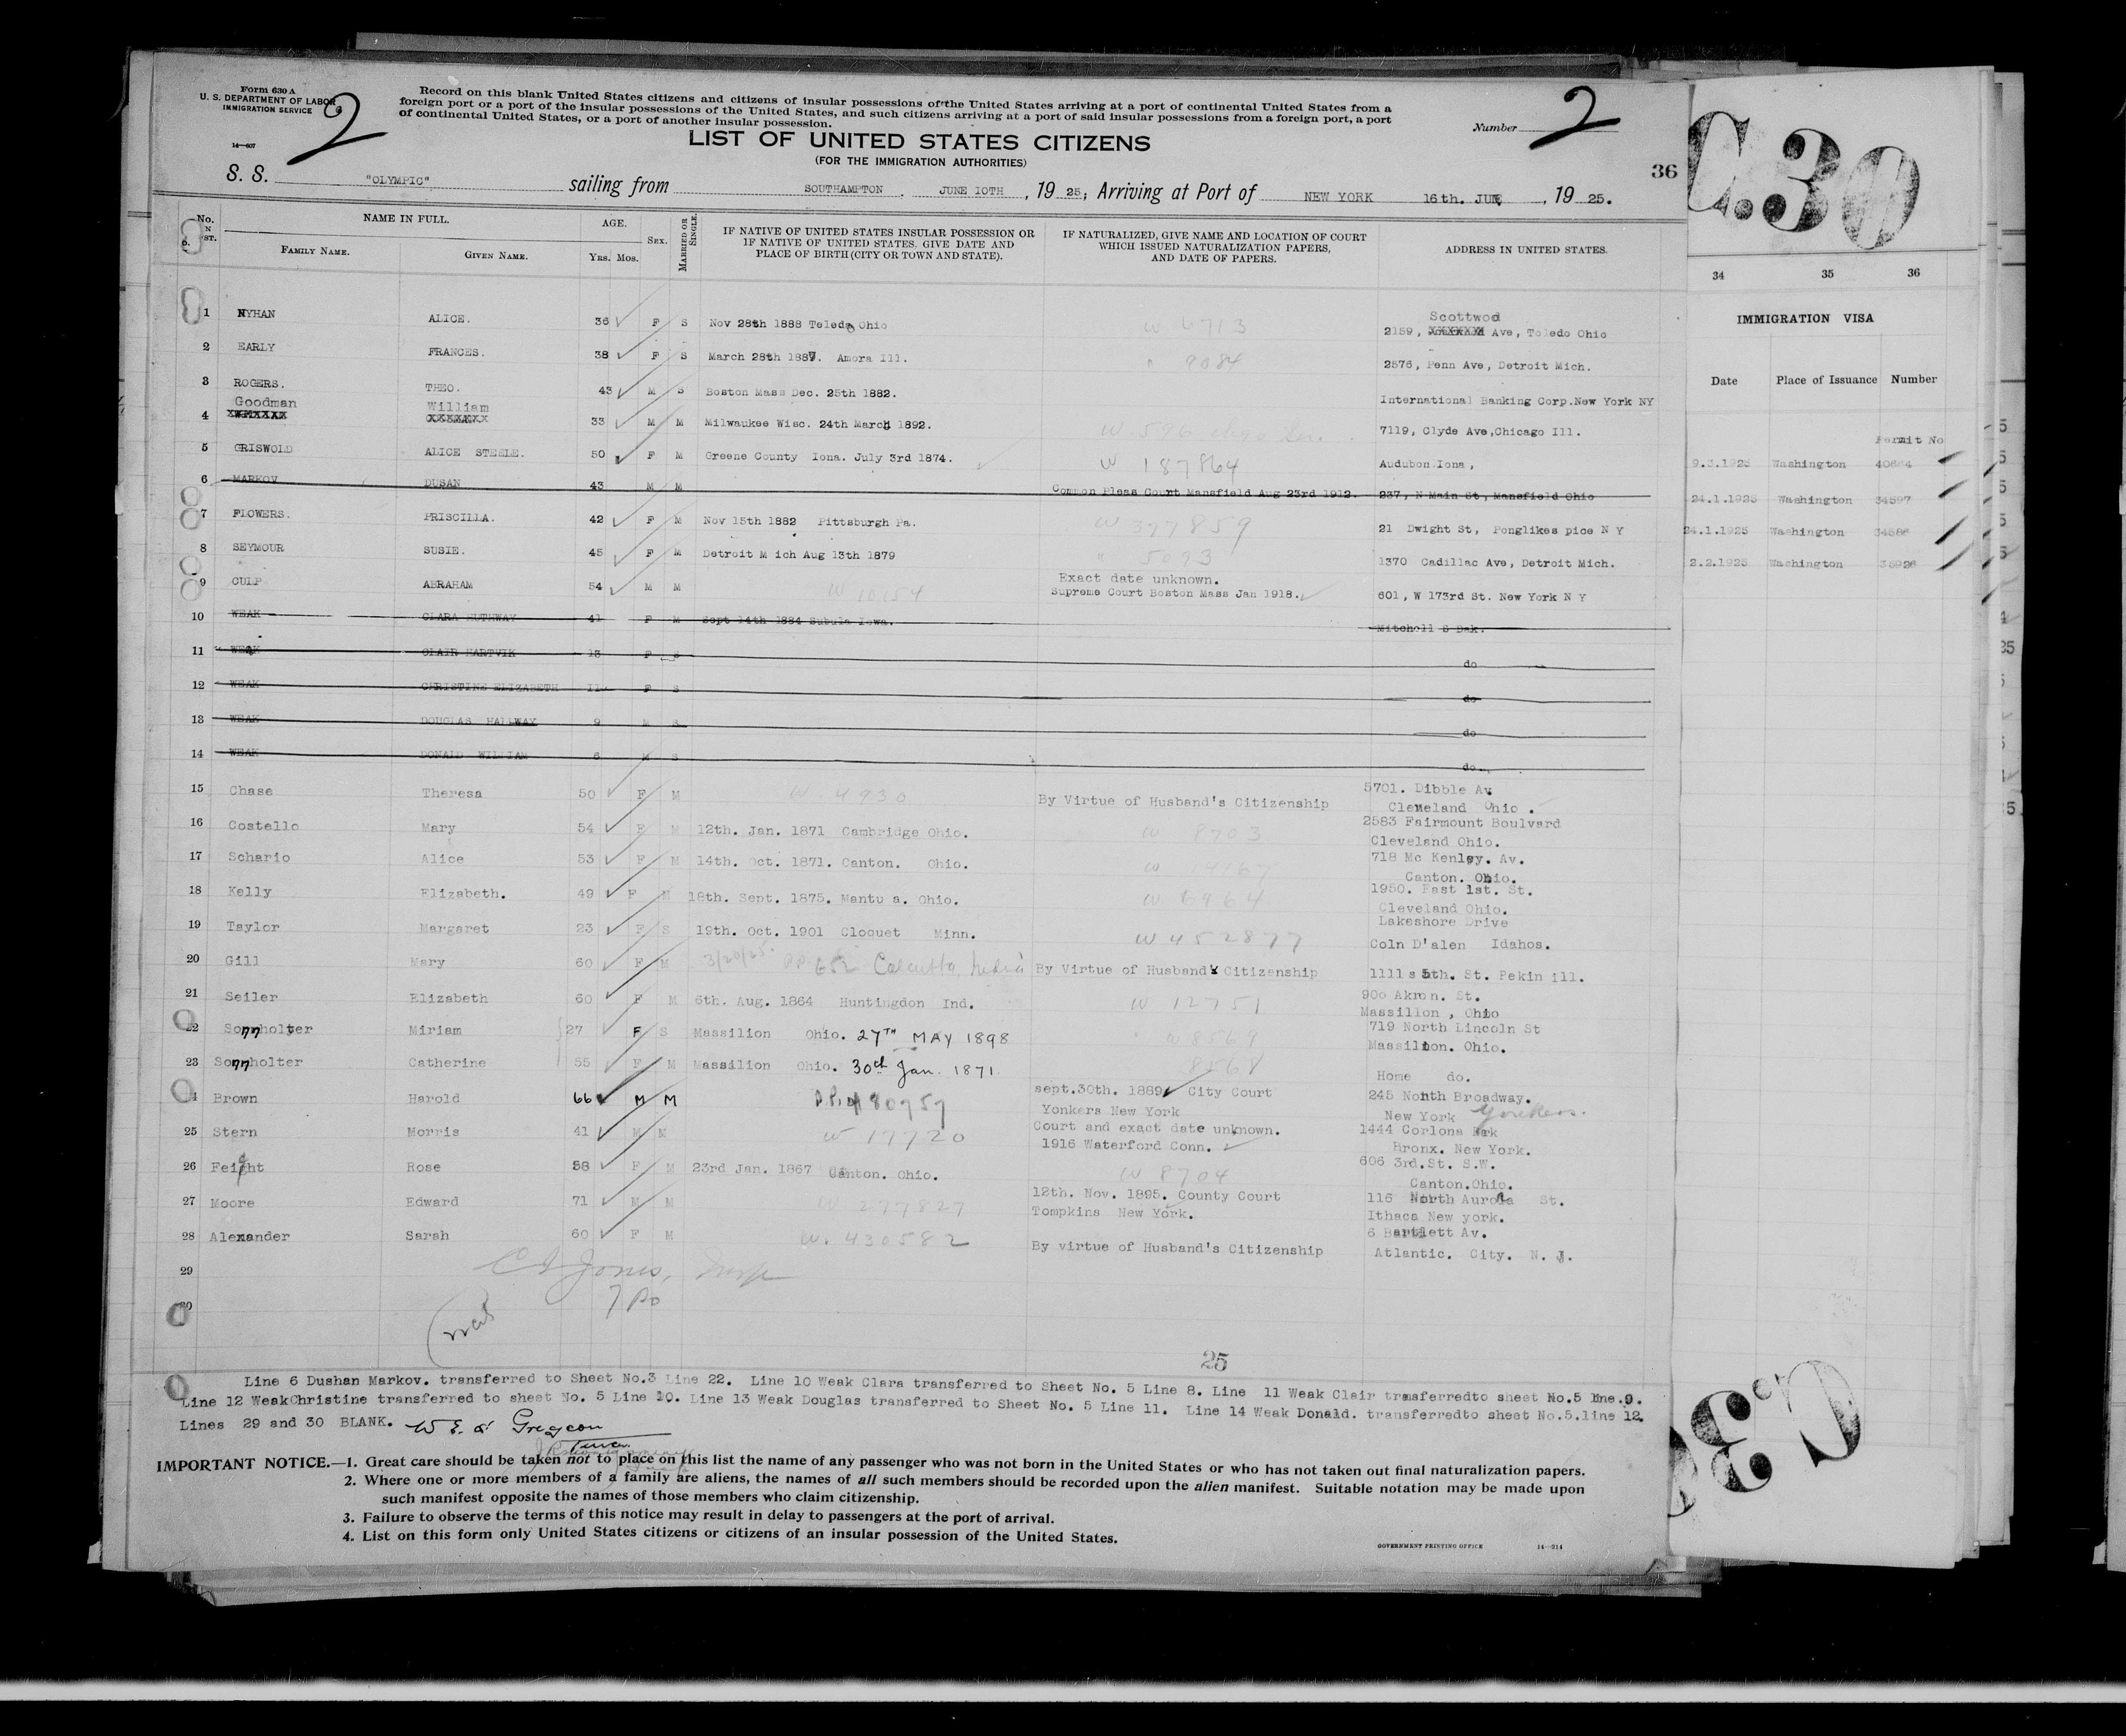 Form 630 A
U. S. DEPARTMENT OF LABOR
IMMIGRATION SERVICE
14—607
2
Record on this blank United States citizens and citizens of insular possessions of the United States arriving at a port of continental United States from a
foreign port or a port of the insular possessions of the United States, and such citizens arriving at a port of said insular possessions from a foreign port, a port
of continental United States, or a port of another insular possession.
LIST OF UNITED STATES CITIZENS
(FOR THE IMMIGRATION AUTHORITIES)
Number 2
36
S. S. "OLYMPIC" sailing from SOUTHAMPTON . JUNE 10TH , 19 25; Arriving at Port of NEW YORK 16th. JUNE , 19 25.
No. NAME IN FULL. AGE. SEX. MARRIED OR SINGLE.
FAMILY NAME. GIVEN NAME. Yrs. Mos.
IF NATIVE OF UNITED STATES INSULAR POSSESSION OR
IF NATIVE OF UNITED STATES, GIVE DATE AND
PLACE OF BIRTH (CITY OR TOWN AND STATE).
IF NATURALIZED, GIVE NAME AND LOCATION OF COURT
WHICH ISSUED NATURALIZATION PAPERS,
AND DATE OF PAPERS.
ADDRESS IN UNITED STATES.
Scottwod
1 NYHAN ALICE. 36 F S Nov 28th 1888 Toledo Ohio W 6713 2159, XXXXXXX Ave, Toledo Ohio
2 EARLY FRANCES. 38 F S March 28th 1887. Amora Ill. " 9084 2576, Penn Ave, Detroit Mich.
3 ROGERS. THEO. 43 M S Boston Mass Dec. 25th 1882. International Banking Corp.New York NY
Goodman William
4 33 M M Milwaukee Wisc. 24th March 1892. W 596 7119, Clyde Ave,Chicago Ill.
5 GRISWOLD ALICE STEELE. 50 F M Greene County Iona. July 3rd 1874. W 187864 Audubon.Iona,
6 MARKOV DUSAN 43 M M Common Pleas Court Mansfield Aug 23rd 1912. 237, N Main St, Mansfield Ohio
7 FLOWERS. PRISCILLA. 42 F M Nov 15th 1882 Pittsburgh Pa. W 377859 21 Dwight St, Ponglikes pice N Y
8 SEYMOUR SUSIE. 45 F M Detroit M ich Aug 13th 1879 " 5093 1370 Cadillac Ave, Detroit Mich.
Exact date unknown.
9 CULP ABRAHAM 54 M M W 10154 Supreme Court Boston Mass Jan 1918. 601, W 173rd St. New York N Y
10 WEAK CLARA HUTHWAY 41 F M Sept 14th 1884 Subula Iowa. Mitchell S Dak.
11 WEAK CLAIR HARTVIK 13 F S do
12 WEAK CHRISTINE ELIZABETH 11 F S do
13 WEAK DOUGLAS HALLWAY 9 M S do
14 WEAK DONALD WILLIAM 6 M S do
15 Chase Theresa 50 F M W 4930 By Virtue of Husband's Citizenship 5701. Dibble Av
Cleveland Ohio .
16 Costello Mary 54 F M 12th. Jan. 1871 Cambridge Ohio. W 8703 2583 Fairmount Boulvard
Cleveland Ohio.
17 Schario Alice 53 F M 14th. Oct. 1871. Canton. Ohio. W 4167 718 Mc Kenley. Av.
Canton. Ohio.
18 Kelly Elizabeth. 49 F M 18th. Sept. 1875. Mantu a. Ohio. W 6964 1950. East 1st. St.
Cleveland Ohio.
19 Taylor Margaret 23 F S 19th. Oct. 1901 Cloquet Minn. W 452877 Lakeshore Drive
Coln D'alen Idahos.
20 Gill Mary 60 F M 3/20/65 Calcutta, India By Virtue of Husbands Citizenship 1111 s 5th. St. Pekin ill.
21 Seiler Elizabeth 60 F M 6th. Aug. 1864 Huntingdon Ind. W 12751 900 Akron. St.
Massillon , Ohio
22 Sonnholter Miriam 27 F S Massilion Ohio. 27TH MAY 1898 W 8569 719 North Lincoln St
Massillon. Ohio.
23 Sonnholter Catherine 55 F M Massilion Ohio. 30th Jan. 1871 8568 Home do.
24 Brown Harold 66 M M 480959 sept.30th. 1889 City Court 245 North Broadway.
Yonkers New York New York Yonkers.
25 Stern Morris 41 M M W 17720 Court and exact date unknown. 1444 Corlona Park
1916 Waterford Conn. Bronx. New York.
26 Feight Rose 58 F M 23rd Jan. 1867 Canton. Ohio. W 8704 606 3rd.St. S.W.
Canton.Ohio.
27 Moore Edward 71 M M W 277827 12th. Nov. 1895. County Court 116 North Aurora St.
Tompkins New York. Ithaca New york.
28 Alexander Sarah 60 F M W. 430582 By virtue of Husband's Citizenship 6 Bartlett Av.
Atlantic. City. N. J.
29 Jones, Insp
30
25
Line 6 Dushan Markov. transferred to Sheet No.3 Line 22. Line 10 Weak Clara transferred to Sheet No. 5 Line 8. Line 11 Weak Clair transferredto sheet No.5 line.9.
Line 12 WeakChristine transferred to sheet No. 5 Line 10. Line 13 Weak Douglas transferred to Sheet No. 5 Line 11. Line 14 Weak Donald. transferredto sheet No.5.line 12.
Lines 29 and 30 BLANK.
IMPORTANT NOTICE.—1. Great care should be taken not to place on this list the name of any passenger who was not born in the United States or who has not taken out final naturalization papers.
2. Where one or more members of a family are aliens, the names of all such members should be recorded upon the alien manifest. Suitable notation may be made upon
such manifest opposite the names of those members who claim citizenship.
3. Failure to observe the terms of this notice may result in delay to passengers at the port of arrival.
4. List on this form only United States citizens or citizens of an insular possession of the United States.
GOVERNMENT PRINTING OFFICE 14—214
C.30
34 35 36
IMMIGRATION VISA
Date Place of Issuance Number
Permit No
9.3.1925 Washington 40664
24.1.1925 Washington 34597
24.1.1925 Washington 34586
2.2.1925 Washington 35926